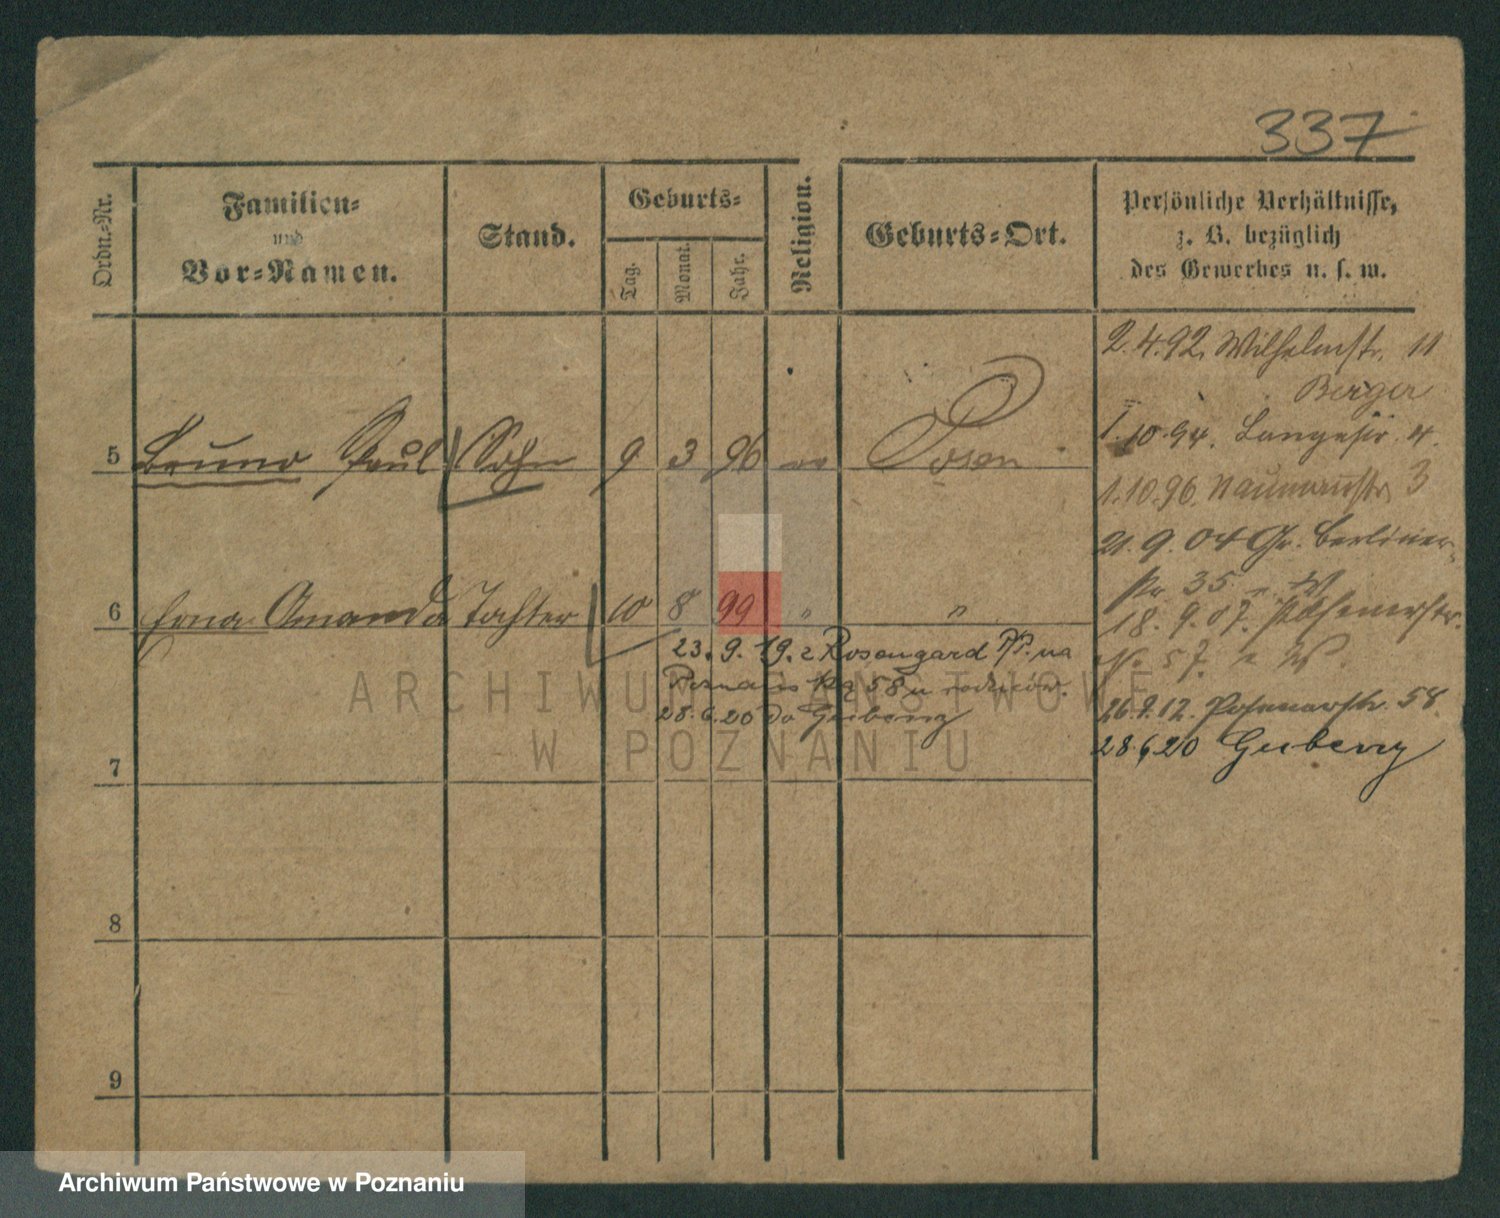 337
Ordn.-Nr.
Familien-
und
Vor-Namen.
Stand.
Geburts-
Tag.
Monat.
Jahr.
Religion.
Geburts-Ort.
Persönliche Verhältnisse,
z. B. bezüglich
des Gewerbes u. s. w.
2.4.92. Wilhelmstr. 11
Berger
1.10.94. Langestr. 4.
5 Bruno Paul Sohn 9 3 96 Posen
1.10.96. Naumannstr. 3
21.9.04 Gr. Berliner-
str 35 n. W
6 Erna Amanda Tochter 10 8 99 " "
18.9.07. Posenerstr.
No. 57. n W.
23.9.19. z Rosengard na
58 u rodziców.
28.6.20 do Gubeny
26.9.12. Posenerstr. 58
28.6.20 Gubeny
7
8
9
ARCHIWUM PAŃSTWOWE
W POZNANIU
Archiwum Państwowe w Poznaniu